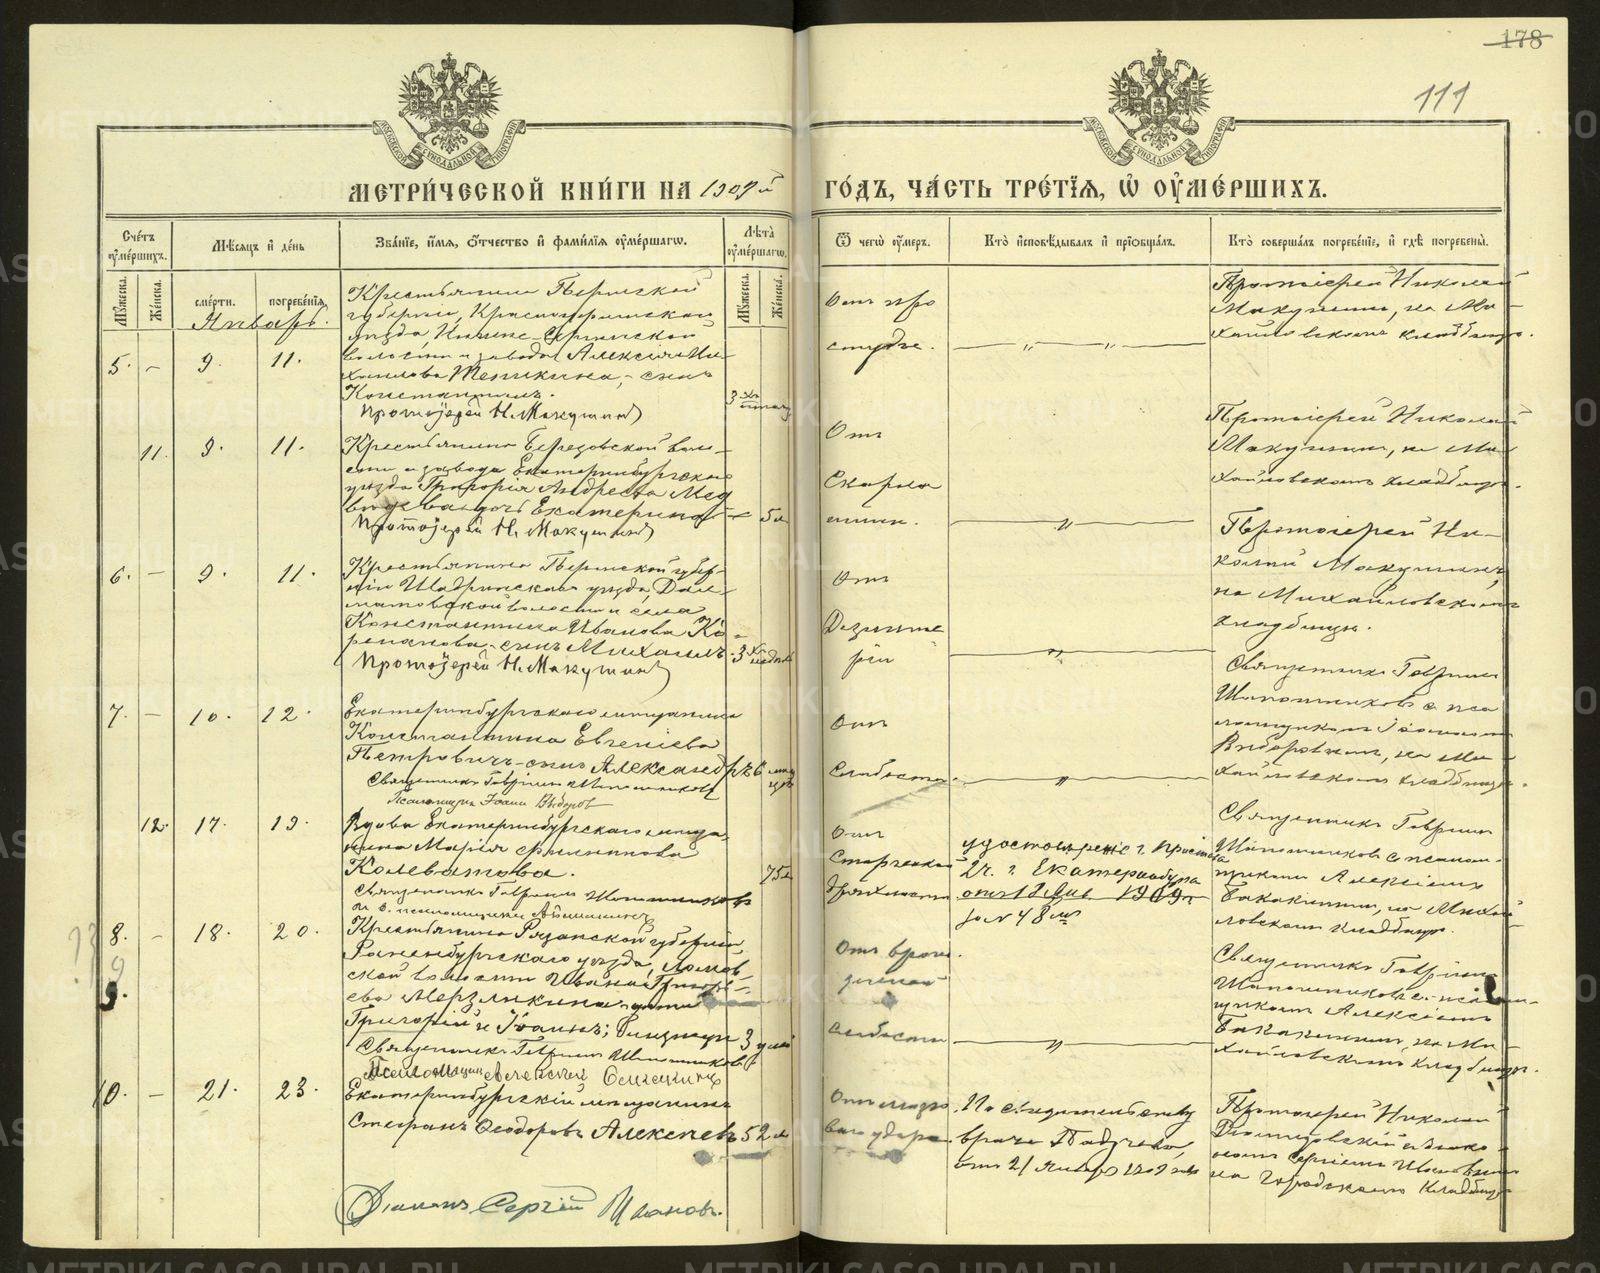 178
111
МЕТРИЧЕСКОЙ КНИГИ НА 1909 й
ГОДЪ, ЧАСТЬ ТРЕТІЯ, Ѡ ОУМЕРШИХЪ.
Счетъ оумершихъ.
Мѣсяцъ и день
Званіе, имя, отчество и фамилія оумершагѡ.
Лѣта оумершагѡ.
Ѿ чегѡ оумеръ.
Кто исповѣдывалъ и пріобщалъ.
Кто совершалъ погребеніе, и гдѣ погребены.
Мужеска.
Женска.
смерти.
погребенія.
Мужеска.
Женска.
Январь.
5. - 9. 11.
Крестьянина Пермской
губерніи, Красноуфимскаго
уѣзда, Нижне-Сергинской
волости и завода Алексія Ми-
хаилова Тепикина, - сынъ
Константинъ.
Протоіерей Н. Макушинъ
3
Отъ про
студы.
Протоіерей Николай
Макушинъ, на Ми-
хайловскомъ кладбищѣ.
11. 9. 11.
Крестьянина Березовской воло-
сти и завода Екатеринбургскаго
уѣзда Григорія Андреева Мед
вѣдева дочь Екатерина
Протоіерей Н. Макушинъ
5 л
Отъ
Скарла
тины.
Протоіерей Николай
Макушинъ, на Ми-
хайловскомъ кладбищѣ.
6. - 9. 11.
Крестьянина Пермской губер-
ніи Шадринскаго уѣзда, Дал-
матовской волости и села
Константина Иванова Ко-
репанова - сынъ Михаилъ
Протоіерей Н. Макушинъ
3
Отъ
Дезинте
ріи
Протоіерей Ни-
колай Макушинъ,
на Михайловскомъ
кладбищѣ.
7. - 10. 12.
Екатеринбургскаго мѣщанина
Константина Евгеніева
Петровичъ - сынъ Александръ
Священникъ Гавріилъ Шапошниковъ
Псаломщикъ Іоаннъ Выборовъ
6 мѣся
цевъ
Отъ
Слабости.
Священникъ Гавріилъ
Шапошниковъ с пса
ломщикомъ Іоанномъ
Выборовымъ, на Ми-
хайловскомъ кладбищѣ.
12. 17. 19.
Вдова Екатеринбургскаго мѣща-
нина Марія Филиппова
Колеватова.
Священникъ Гавріилъ Шапошниковъ
75 л
Отъ
Старческой
дряхлости
удостовѣреніе г. Пристава
2 ч. г. Екатеринбурга
отъ 18 Янв. 1909 г.
за № 48
Священникъ Гавріилъ
Шапошниковъ с псалом-
щикомъ Алексіемъ
на Михай-
ловскомъ кладбищѣ.
8. - 18. 20.
9.
Крестьянина Рязанской губерніи,
Раненбургскаго уѣзда,
ской волости Ивана Григорь-
ева Мерзликина - дѣти
Григорій и Іоаннъ; близнецы
Священникъ Гавріилъ Шапошниковъ
Псаломщикъ Алексій
3 дней
Отъ врож-
денной
слабости
Священникъ Гавріилъ
Шапошниковъ с псалом-
щикомъ Алексіемъ
на Ми-
хайловскомъ кладбищѣ.
10. - 21. 23.
Екатеринбургскій мѣщанинъ
Стефанъ Ѳеодоровъ Алексѣевъ
52 л
Отъ мозго
ваго удара.
По свидѣтельству
врача
отъ 21 Января 1909 года
Протоіерей Николай
с діако-
номъ Сергіемъ Ивановымъ
на городскомъ кладбищѣ
Діаконъ Сергій Ивановъ.
METRIKI.SASO-URAL.RU